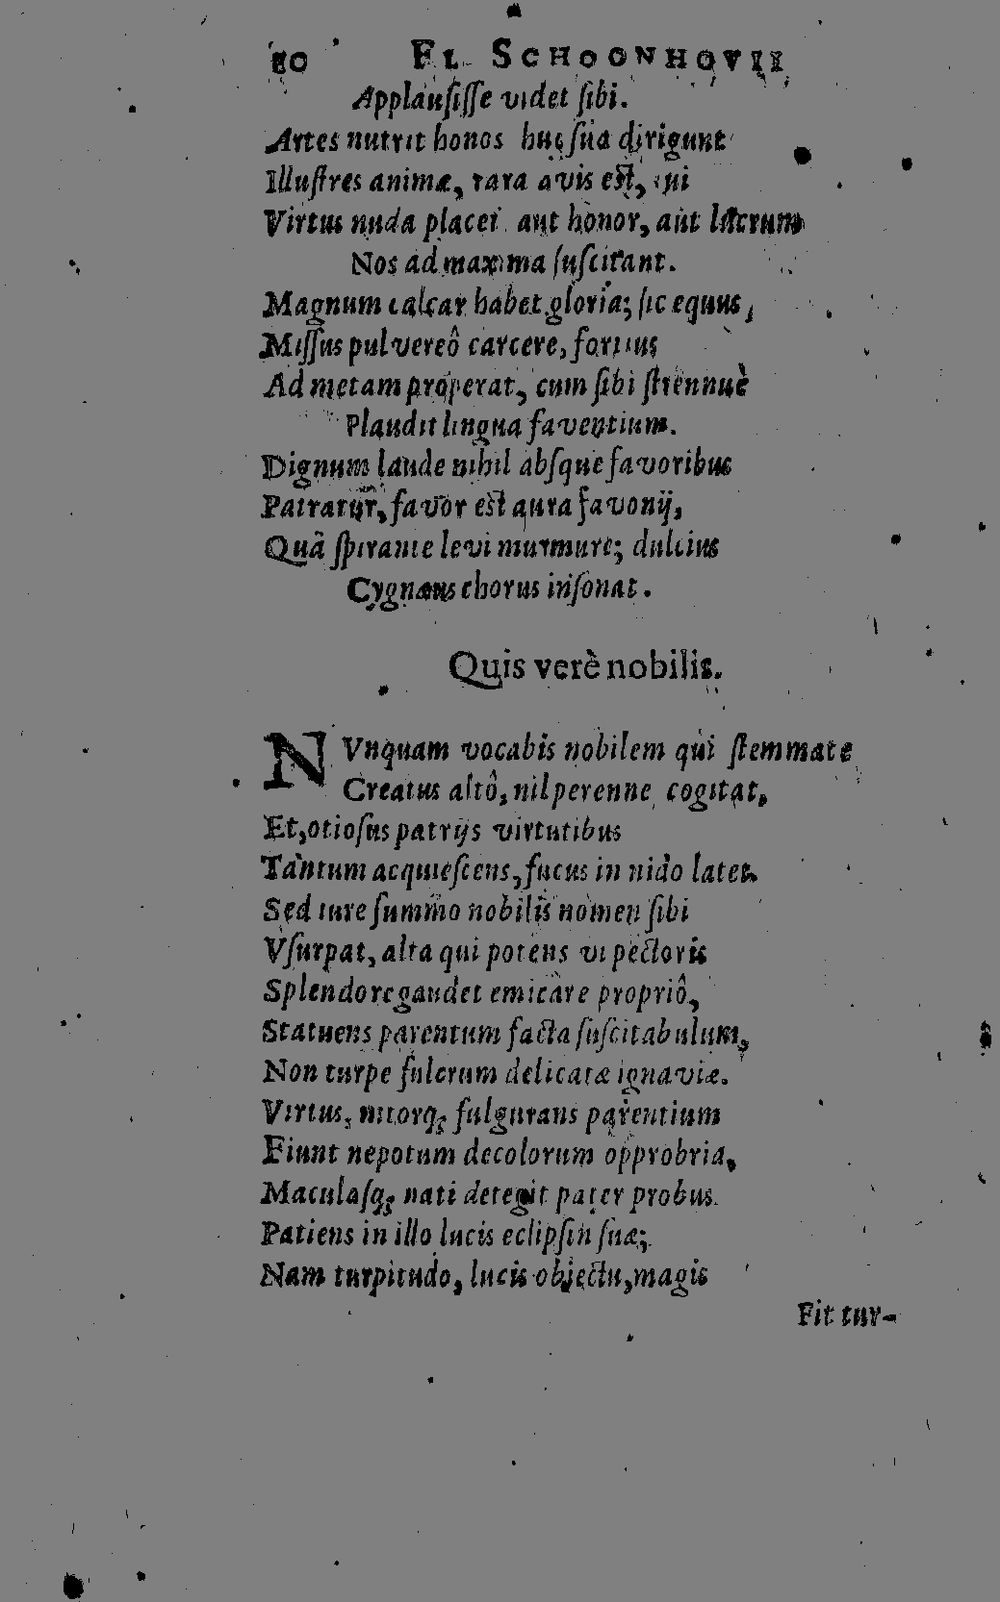 80 Fl. Schoonhovii
Applausisse videt sibi.
Artes nutrit honos huc sua dirigunt
Illustres animæ, rara avis est, cui
Virtus nuda placet aut honor, aut lucrum
Nos ad maxima suscitant.
Magnum calcar habet gloria; sic equus,
Missus pulvereô carcere, fortius
Ad metam properat, cum sibi strennuè
Plaudit lingua faventium.
Dignum laude nihil absque favoribus
Patratur, favor est aura favonij,
Quâ spirante levi murmure; dulcius
Cygnæus chorus insonat.
Quis verè nobilis.
NVnquam vocabis nobilem qui stemmate
Creatus altô, nil perenne cogitat,
Et, otiosus patrijs virtutibus
Tantum acquiescens, fucus in nido latet.
Sed iure summo nobilis nomen sibi
Vsurpat, alta qui potens vi pectoris
Splendore gaudet emicare propriô,
Statuens parentum facta suscitabulum,
Non turpe fulcrum delicatæ ignaviæ.
Virtus, nitorq; fulgurans parentium
Fiunt nepotum decolorum opprobria,
Maculasq; nati detegit pater probus
Patiens in illo lucis eclipsin suæ;
Nam turpitudo, lucis objectu, magis
Fit tur-